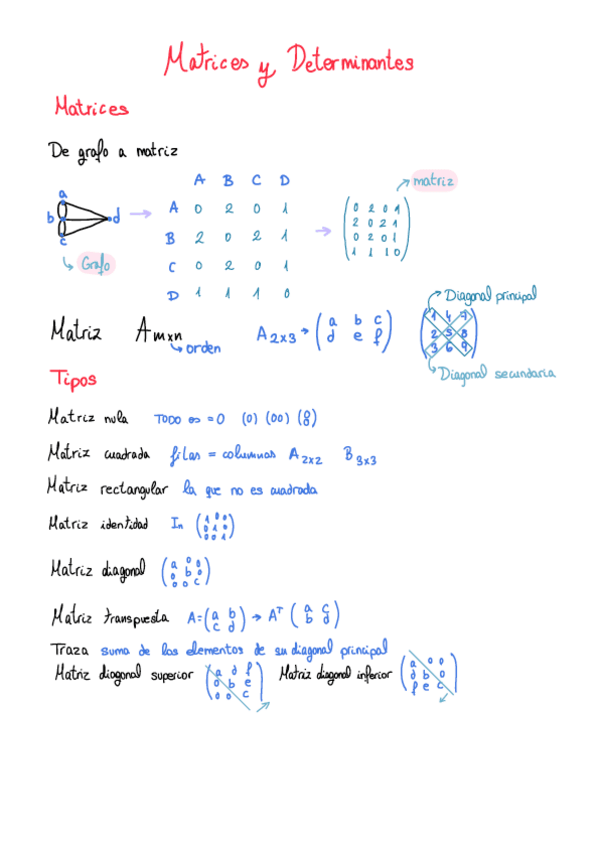 Matrices y Determinantes
Matrices
De grafo a matriz
A B C D
A 0 2 0 1
B 2 0 2 1
C 0 2 0 1
D 1 1 1 0
a
b
c
d
Grafo
matriz
0 2 0 1
2 0 2 1
0 2 0 1
1 1 1 0
Matriz Amxn
orden
A2x3 → (a b c
d e f)
Diagonal principal
1 4 7
2 5 8
3 6 9
Diagonal secundaria
Tipos
Matriz nula TODO es = 0 (0) (00) (0
0)
Matriz cuadrada filas = columnas A2x2 B3x3
Matriz rectangular la que no es cuadrada
Matriz identidad In (1 0 0
0 1 0
0 0 1)
Matriz diagonal (a 0 0
0 b 0
0 0 c)
Matriz transpuesta A=(a b
c d) → AT (a c
b d)
Traza suma de los elementos de su diagonal principal
Matriz diagonal superior (a d f
0 b e
0 0 c)
Matriz diagonal inferior (a 0 0
d b 0
f e c)